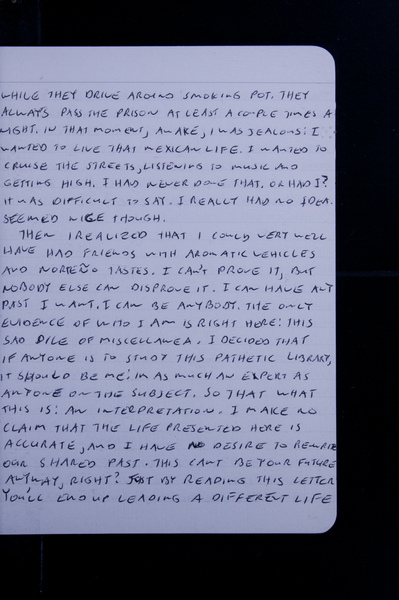 WHILE THEY DRIVE AROUND SMOKING POT. THEY
ALWAYS PASS THE PRISON AT LEAST A COUPLE TIMES A
NIGHT. IN THAT MOMENT, AWAKE, I WAS JEALOUS: I
WANTED TO LIVE THAT MEXICAN LIFE. I WANTED TO
CRUISE THE STREETS, LISTENING TO MUSIC AND
GETTING HIGH. I HAD NEVER DONE THAT. OR HAD I?
IT WAS DIFFICULT TO SAY. I REALLY HAD NO IDEA.
SEEMED NICE THOUGH.
THEN I REALIZED THAT I COULD VERY WELL
HAVE HAD FRIENDS WITH AROMATIC VEHICLES
AND NORTEÑO TASTES. I CAN'T PROVE IT, BUT
NOBODY ELSE CAN DISPROVE IT. I CAN HAVE ANY
PAST I WANT. I CAN BE ANYBODY. THE ONLY
EVIDENCE OF WHO I AM IS RIGHT HERE: THIS
SAD PILE OF MISCELLANEA. I DECIDED THAT
IF ANYONE IS TO STUDY THIS PATHETIC LIBRARY,
IT SHOULD BE ME: I'M AS MUCH AN EXPERT AS
ANYONE ON THE SUBJECT. SO THAT WHAT
THIS IS: AN INTERPRETATION. I MAKE NO
CLAIM THAT THE LIFE PRESENTED HERE IS
ACCURATE, AND I HAVE NO DESIRE TO REWRITE
OUR SHARED PAST. THIS CAN'T BE YOUR FUTURE
ANYWAY, RIGHT? JUST BY READING THIS LETTER
YOU'LL END UP LEADING A DIFFERENT LIFE